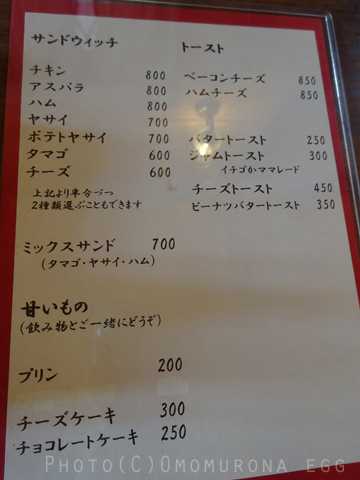 サンドウィッチ
チキン 800
アスパラ 800
ハム 800
ヤサイ 700
ポテトヤサイ 700
タマゴ 600
チーズ 600
上記より半分づつ
2種類選ぶこともできます
ミックスサンド 700
(タマゴ・ヤサイ・ハム)
甘いもの
(飲み物とご一緒にどうぞ)
プリン 200
チーズケーキ 300
チョコレートケーキ 250
トースト
ベーコンチーズ 850
ハムチーズ 850
バタートースト 250
ジャムトースト 300
イチゴかママレード
チーズトースト 450
ピーナツバタートースト 350
Photo(C)Omomurona egg